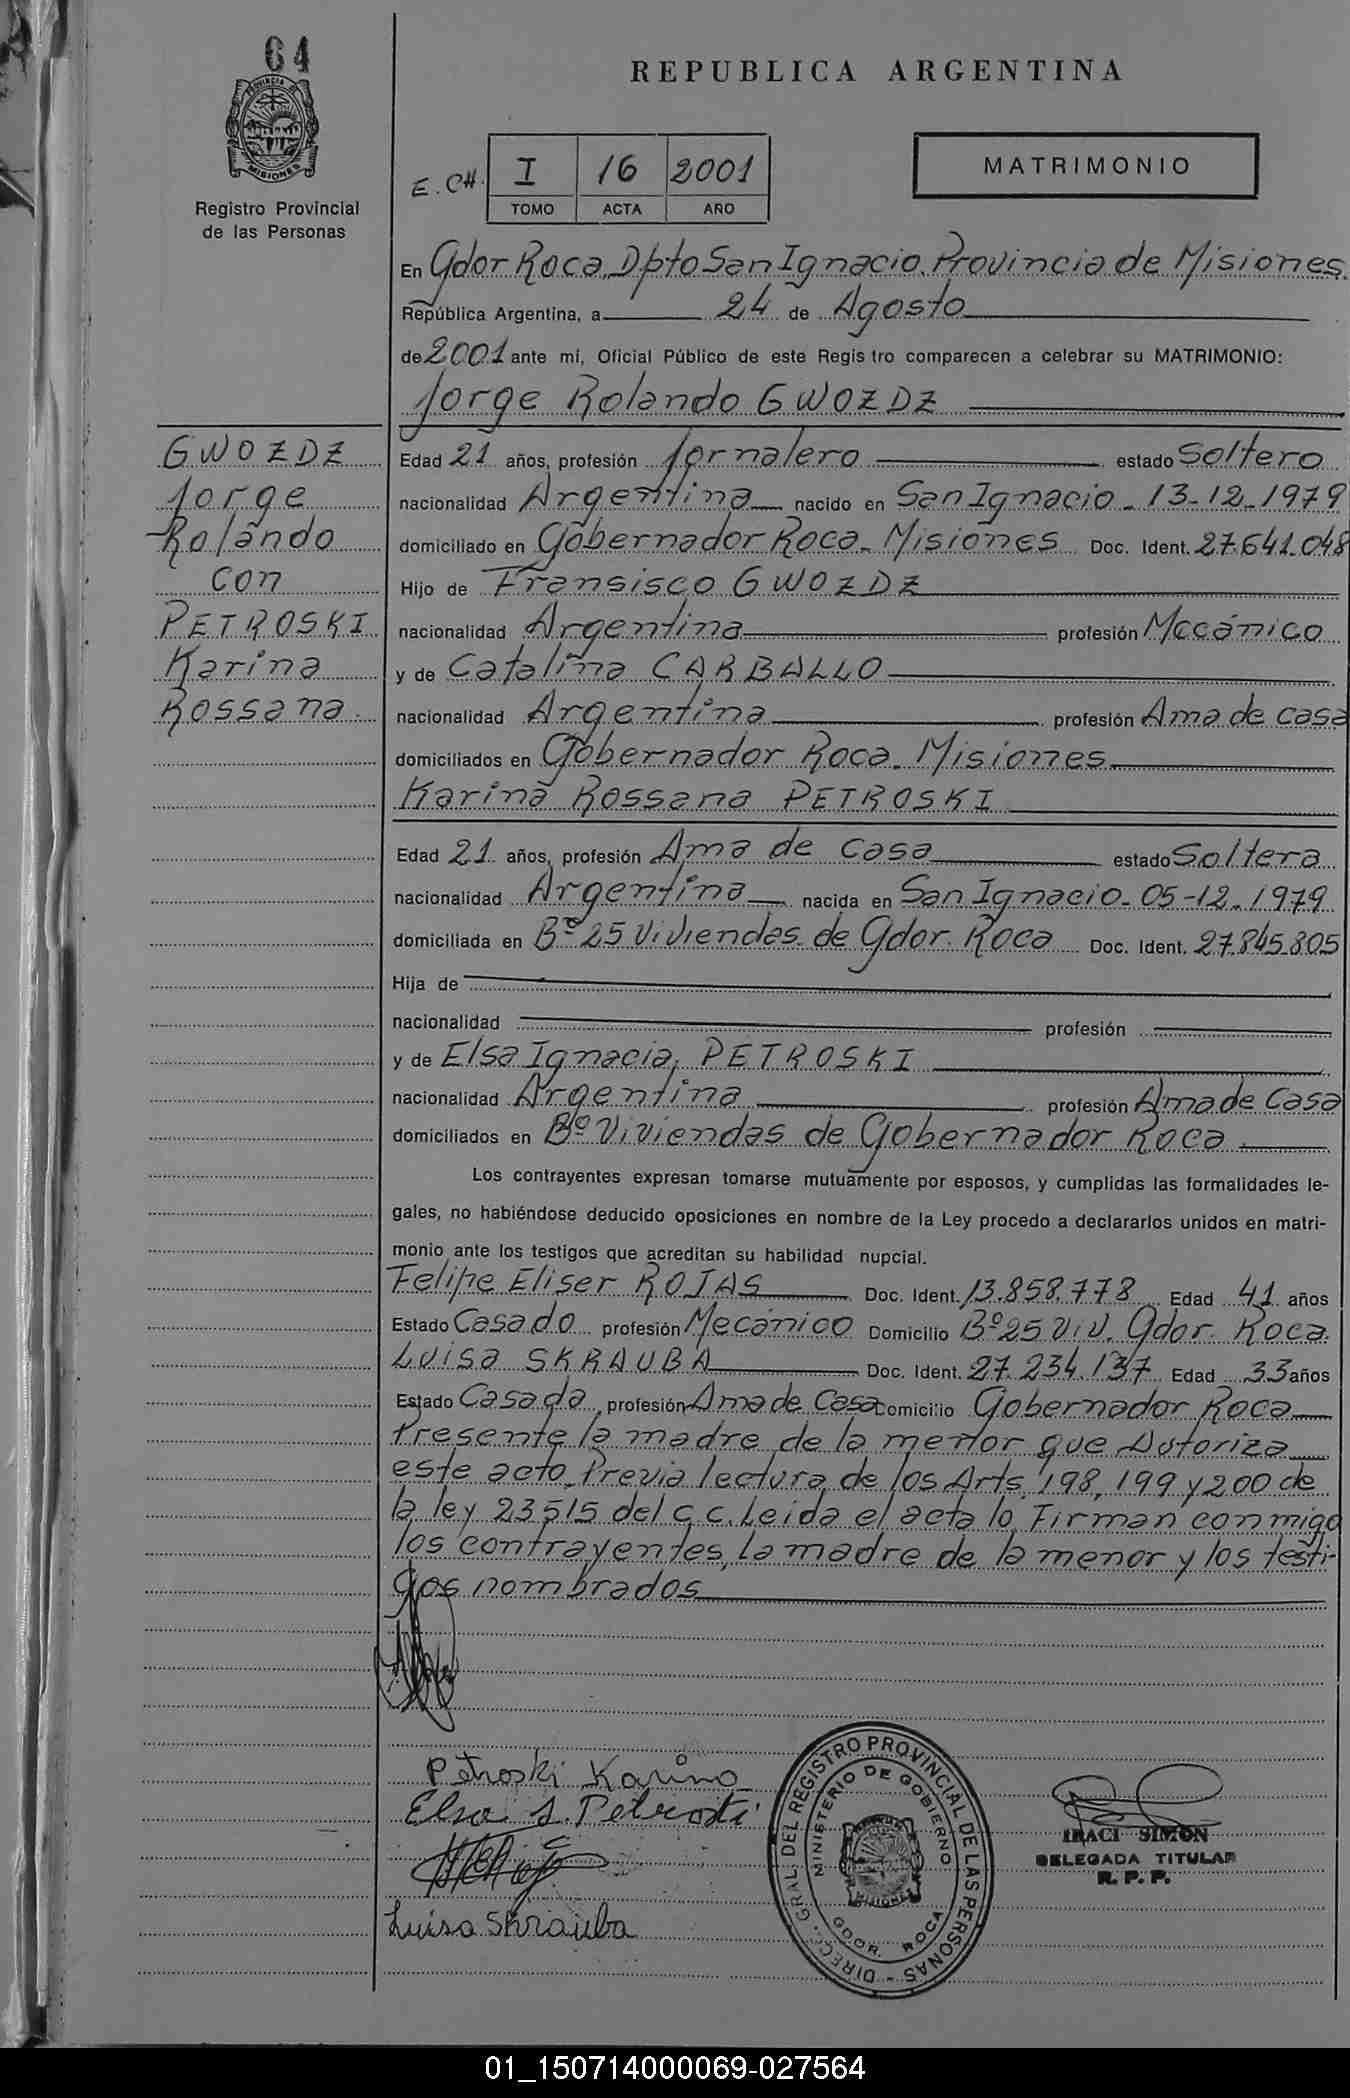 64
PROVINCIA DE
MISIONES
Registro Provincial
de las Personas
REPUBLICA ARGENTINA
E. CH. I 16 2001
TOMO ACTA AÑO
MATRIMONIO
En Gdor Roca, Dpto San Ignacio. Provincia de Misiones.
República Argentina, a 24 de Agosto
de 2001 ante mí, Oficial Público de este Regis tro comparecen a celebrar su MATRIMONIO:
Jorge Rolando GWOZDZ
GWOZDZ
Jorge
Rolando
con
PETROSKI
Karina
Rossana.
Edad 21 años, profesión Jornalero estado Soltero
nacionalidad Argentina nacido en San Ignacio - 13-12-1979
domiciliado en Gobernador Roca - Misiones Doc. Ident. 27.641.048
Hijo de Fransisco GWOZDZ
nacionalidad Argentina profesión Mecánico
y de Catalina CARBALLO
nacionalidad Argentina profesión Ama de casa
domiciliados en Gobernador Roca. Misiones
Karina Rossana PETROSKI
Edad 21 años, profesión Ama de casa estado Soltera
nacionalidad Argentina nacida en San Ignacio - 05-12-1979
domiciliada en Bº 25 Viviendas de Gdor. Roca Doc. Ident. 27.845.805
Hija de
nacionalidad profesión
y de Elsa Ignacia, PETROSKI
nacionalidad Argentina profesión Ama de Casa
domiciliados en Bº Viviendas de Gobernador Roca.
Los contrayentes expresan tomarse mutuamente por esposos, y cumplidas las formalidades le-
gales, no habiéndose deducido oposiciones en nombre de la Ley procedo a declararlos unidos en matri-
monio ante los testigos que acreditan su habilidad nupcial.
Felipe Eliser ROJAS Doc. Ident. 13.858.778 Edad 41 años
Estado Casado profesión Mecánico Domicilio Bº 25 Viv. Gdor. Roca.
Luisa SKRAUBA Doc. Ident. 27.234.137 Edad 33 años
Estado Casada profesión Ama de Casa Domicilio Gobernador Roca
Presente la madre de la menor que Autoriza
este acto. Previa lectura de los Arts. 198, 199 y 200 de
la ley 23515 del C.C. Leida el acta lo Firman conmigo
los contrayentes, la madre de la menor y los testi-
gos nombrados
Petroski Karina
Elsa I. Petroski
Luisa Skrauba
DIRECC. GRAL. DEL REGISTRO PROVINCIAL DE LAS PERSONAS -
MINISTERIO DE GOBIERNO
MISIONES
GDOR. ROCA
IRACI SIMON
DELEGADA TITULAR
R. P. P.
01_150714000069-027564